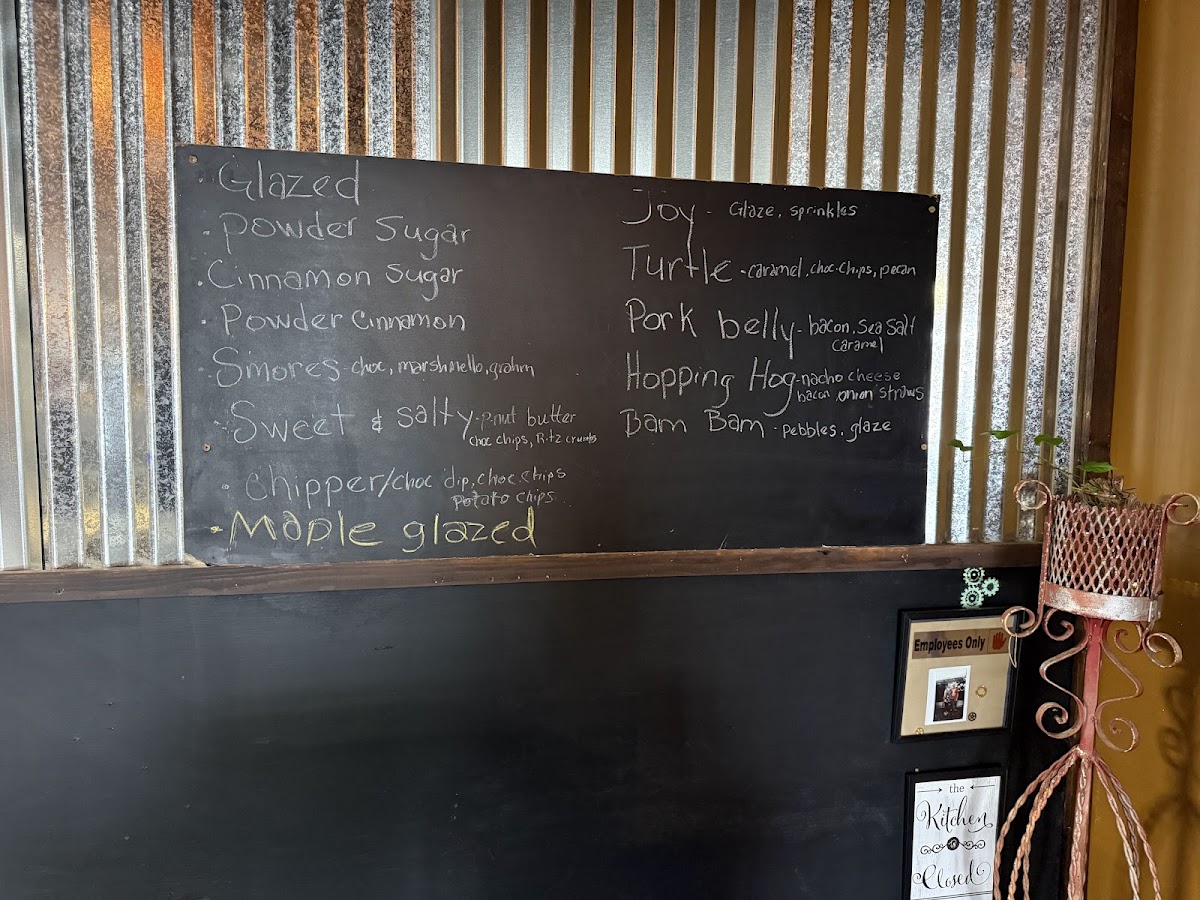 · Glazed
· Powder Sugar
· Cinnamon Sugar
· Powder Cinnamon
· Smores - choc, marshmello, grahm
· Sweet & Salty - P-nut butter
choc chips, Ritz crumbs
· Chipper/choc dip, choc chips
potato chips
· Maple glazed
Joy - Glaze, sprinkles
Turtle - caramel, choc chips, pecan
Pork belly - bacon, Sea Salt
Caramel
Hopping Hog - nacho cheese
bacon, onion straws
Bam Bam - pebbles, glaze
Employees Only
the
Kitchen
is
Closed